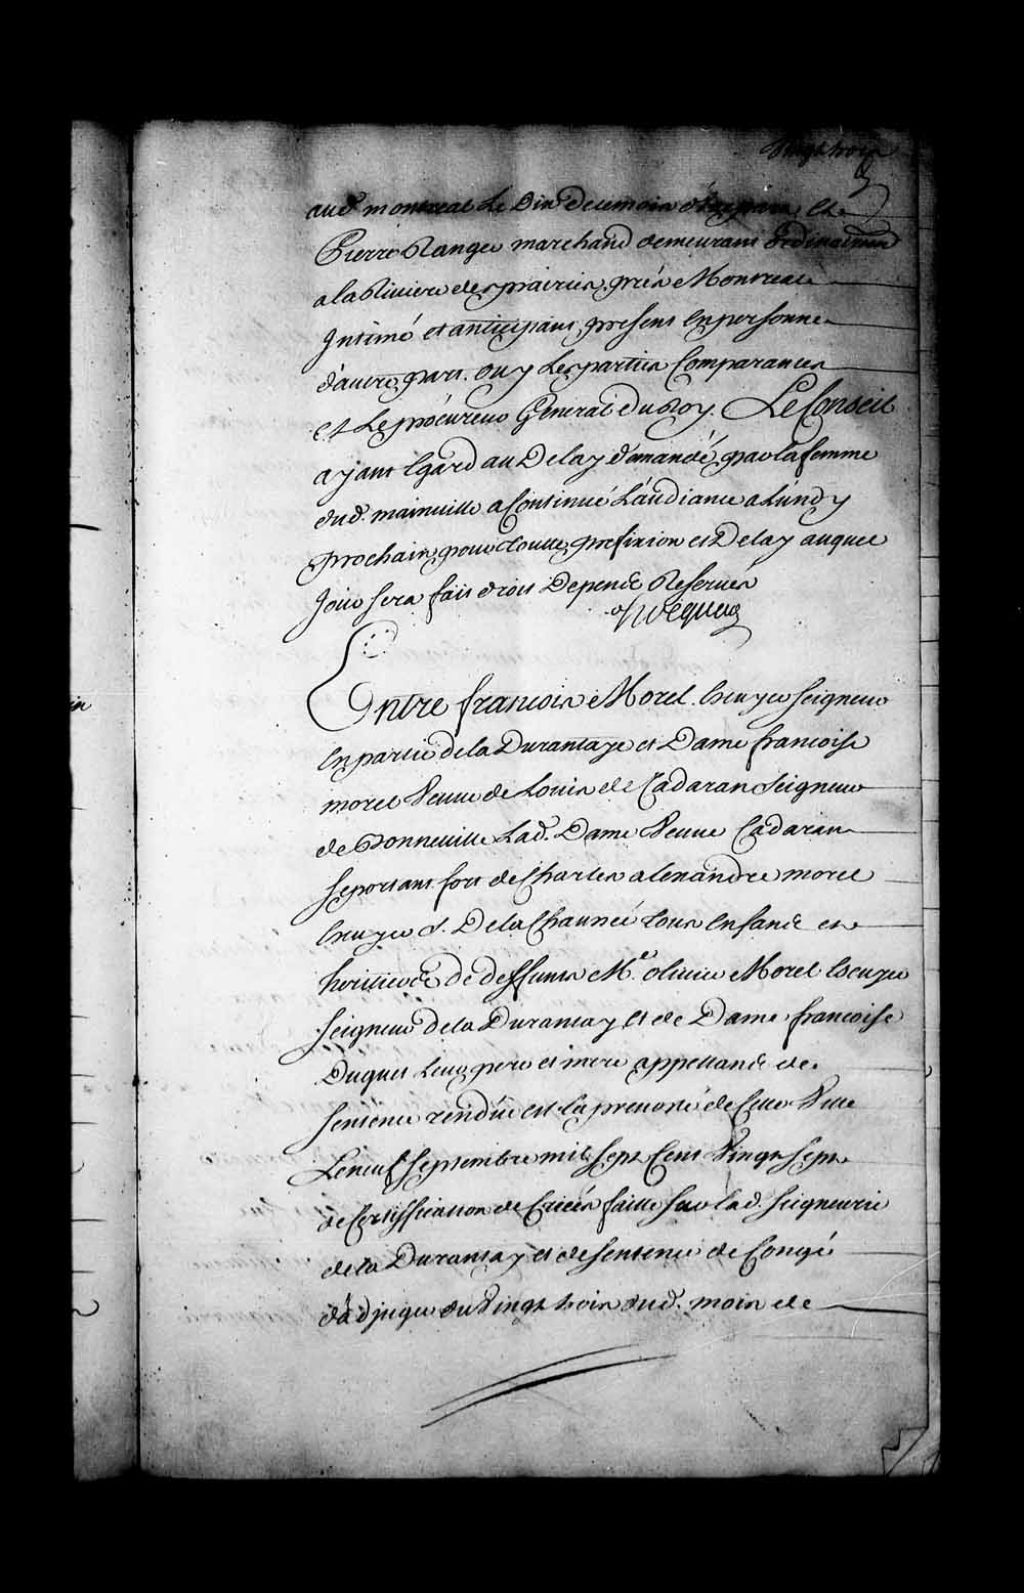 Vingt trois
aud. montreal Le Dix Deumois et
Pierre Ranger marchand demeurant ordinairem.
a la Riviere des prairies, prés Montreal
Intimé et anticipant, present En personne
d'autre, part. ouy Les parties Comparantes
et Le procureur General du Roy. Le Conseil
ayant Egard au Delay demandé, par la femme
dud. mainville a Continué L'audiance a Lundy
prochain, pour toutte, prefixion et Delay auquel
Jour sera fait droit Depens Reservés
Hocquart
Entre francois Morel. Ecuyer seigneur
En partie de la Durantaye et Dame francoise
morel Veuve de Louis de Cadaran seigneur
de Bonneville Lad. Dame Veuve Cadaran
se portant fort de Charles alexandre morel
Ecuyer s. De la Chaussée tous Enfans et
heritiers de deffunts Me. olivier Morel Ecuyer
seigneur de la Durantay et de Dame francoise
Duquet Leur pere et mere appellans de
sentence rendüe en la prevosté de Cette Ville
Le neuf septembre mil sept Cent Vingt sept
de Certiffication de Criées faitte sur lad. seigneurie
de la Durantay et de sentence de Congé
d'adjuger du Vingt trois dud. mois de